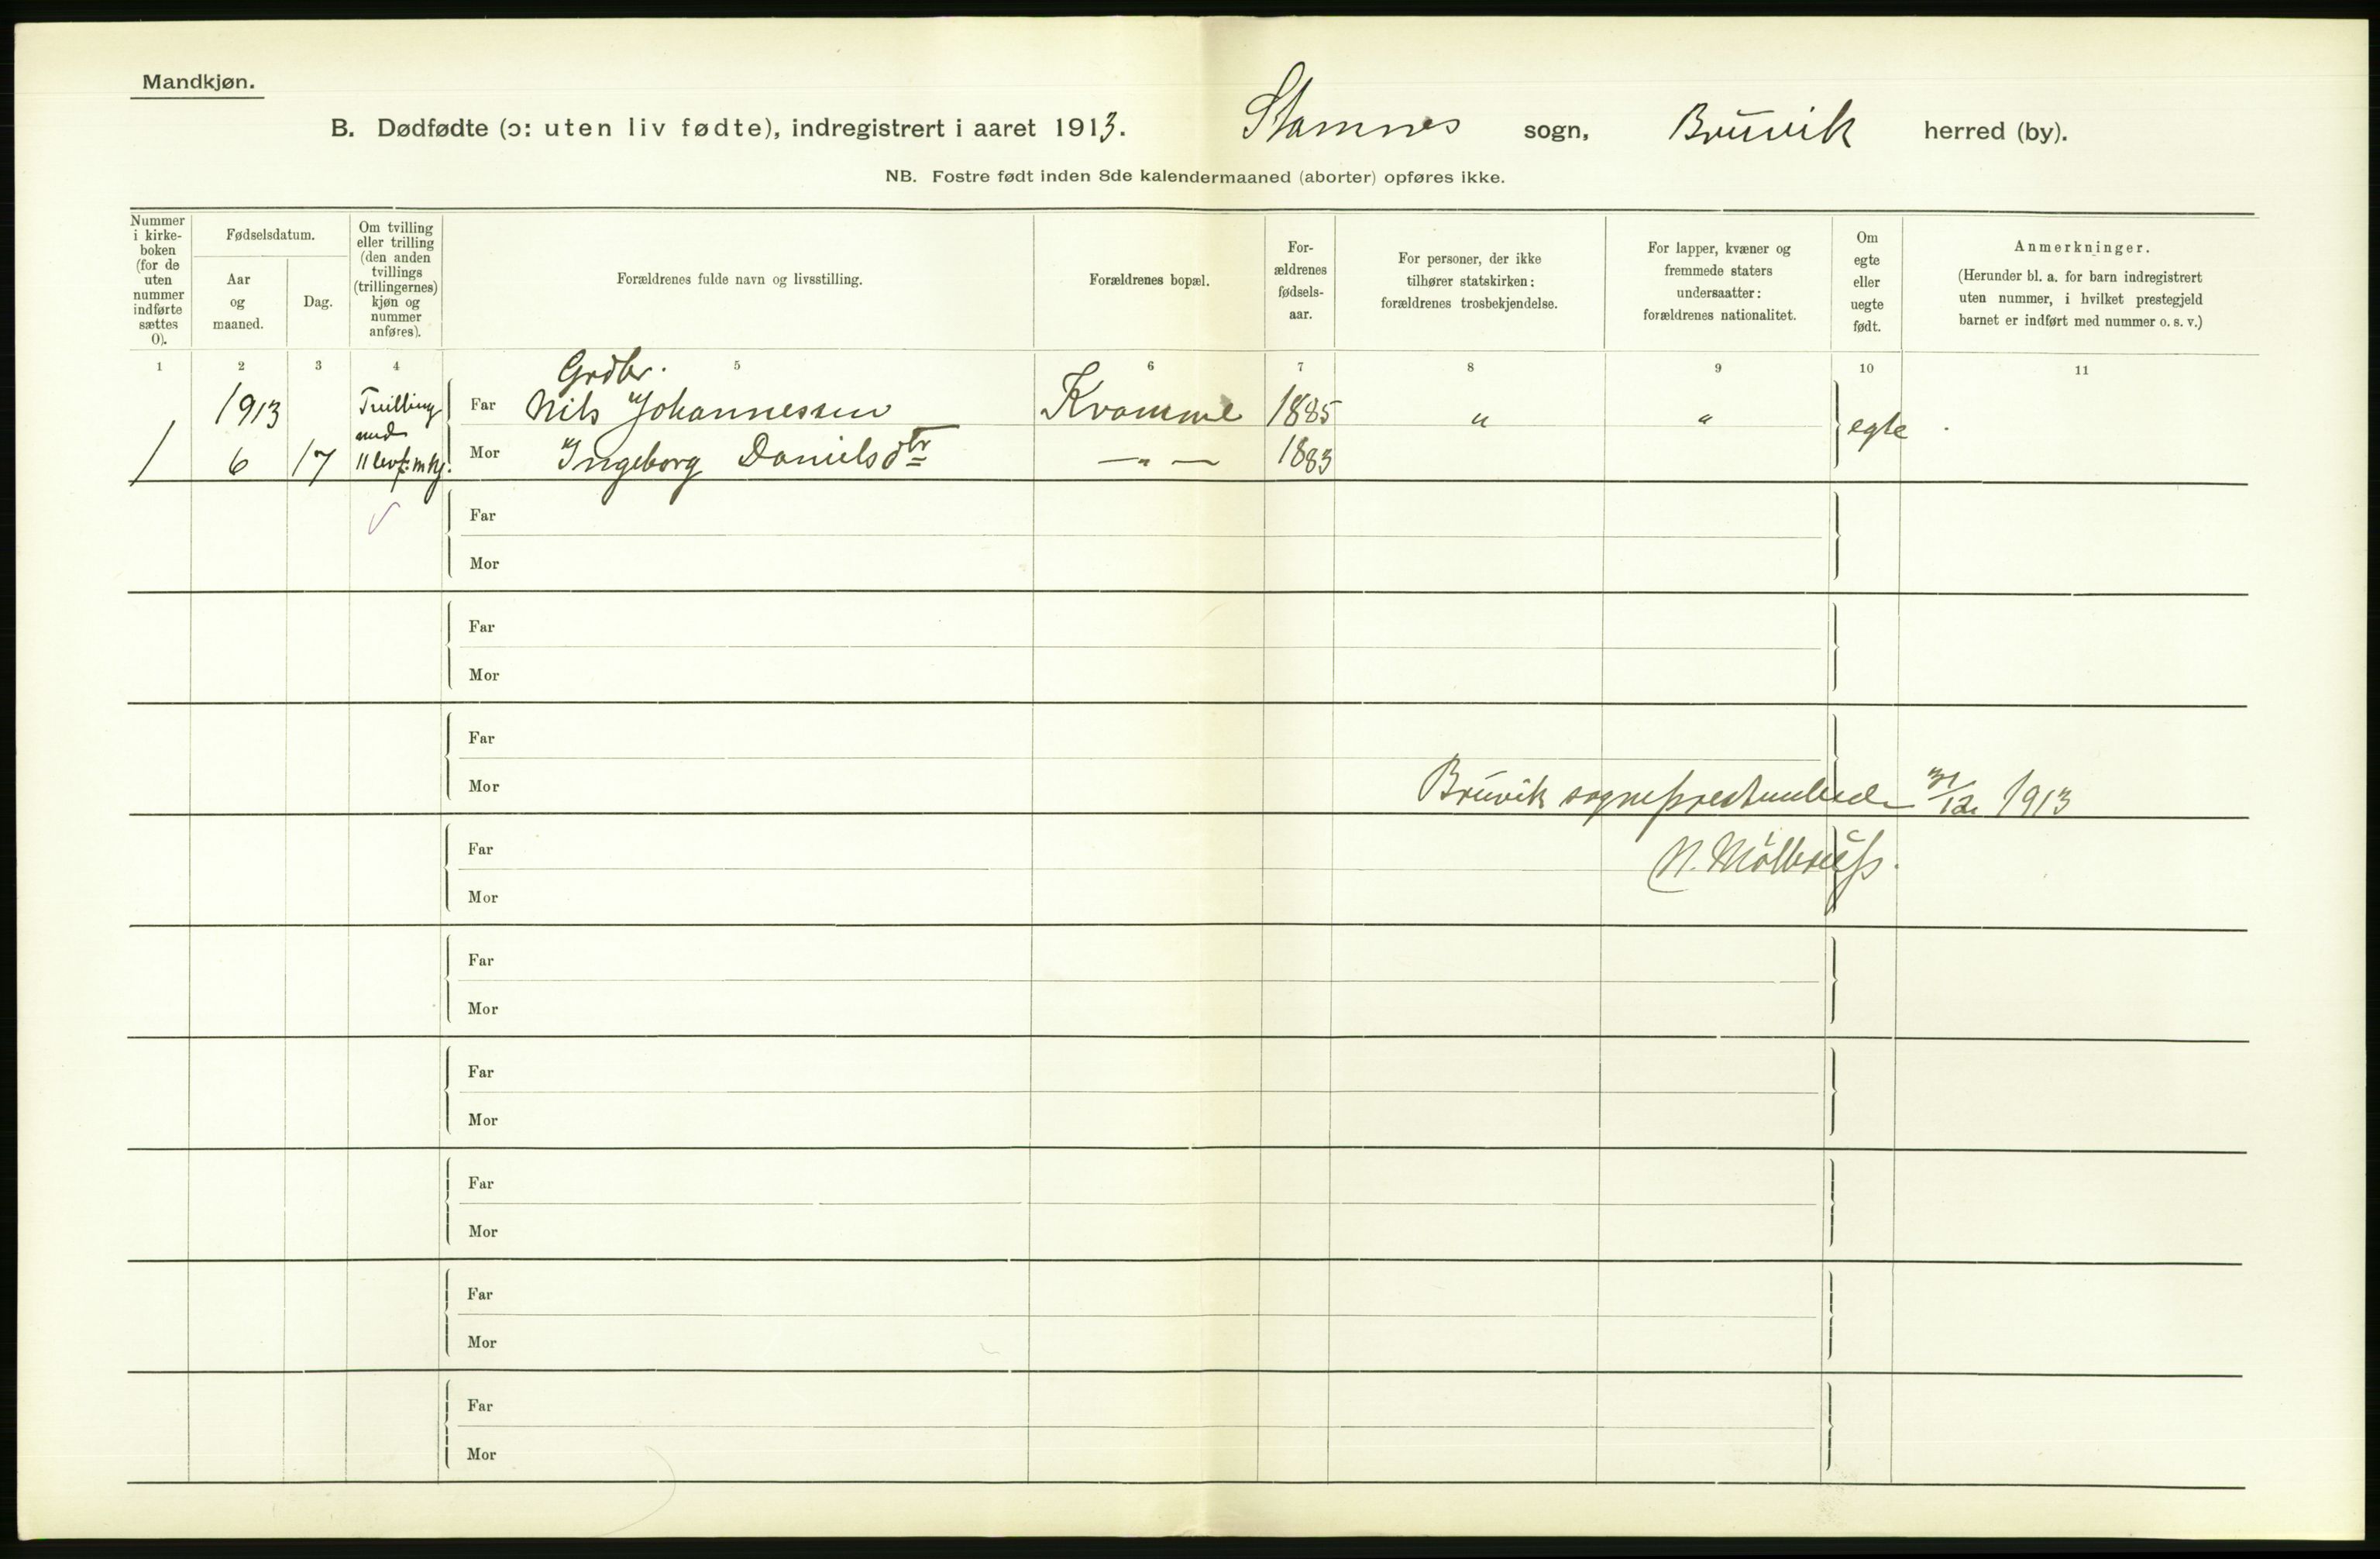 Mandkjøn.
B. Dødfødte (ɔ: uten liv fødte), indregistrert i aaret 1913. Stamnes sogn, Bruvik herred (by).
NB. Fostre født inden 8de kalendermaaned (aborter) opføres ikke.
Nummer
i kirke-
boken
(for de
uten
nummer
indførte
sættes
0).
Fødselsdatum.
Aar
og
maaned.
Dag.
Om tvilling
eller trilling
(den anden
tvillings
(trillingernes)
kjøn og
nummer
anføres).
Forældrenes fulde navn og livsstilling.
Forældrenes bopæl.
For-
ældrenes
fødsels-
aar.
For personer, der ikke
tilhører statskirken:
forældrenes trosbekjendelse.
For lapper, kvæner og
fremmede staters
undersaatter:
forældrenes nationalitet.
Om
egte
eller
uegte
født.
Anmerkninger.
(Herunder bl. a. for barn indregistrert
uten nummer, i hvilket prestegjeld
barnet er indført med nummer o. s. v.)
1 2 3 4 5 6 7 8 9 10 11
Grdbr.
1913 Tvilling Far Nils Johannessen Kvamme 1885 " "
med
egte .
1 6 17 11 levf: mkj. Mor Ingeborg Danielsdtr — " — 1883
Far
Mor
Far
Mor
Far
Mor
Bruvik sogneprestembede 31/12 1913
Far
N.
Mor
Far
Mor
Far
Mor
Far
Mor
Far
Mor
Far
Mor